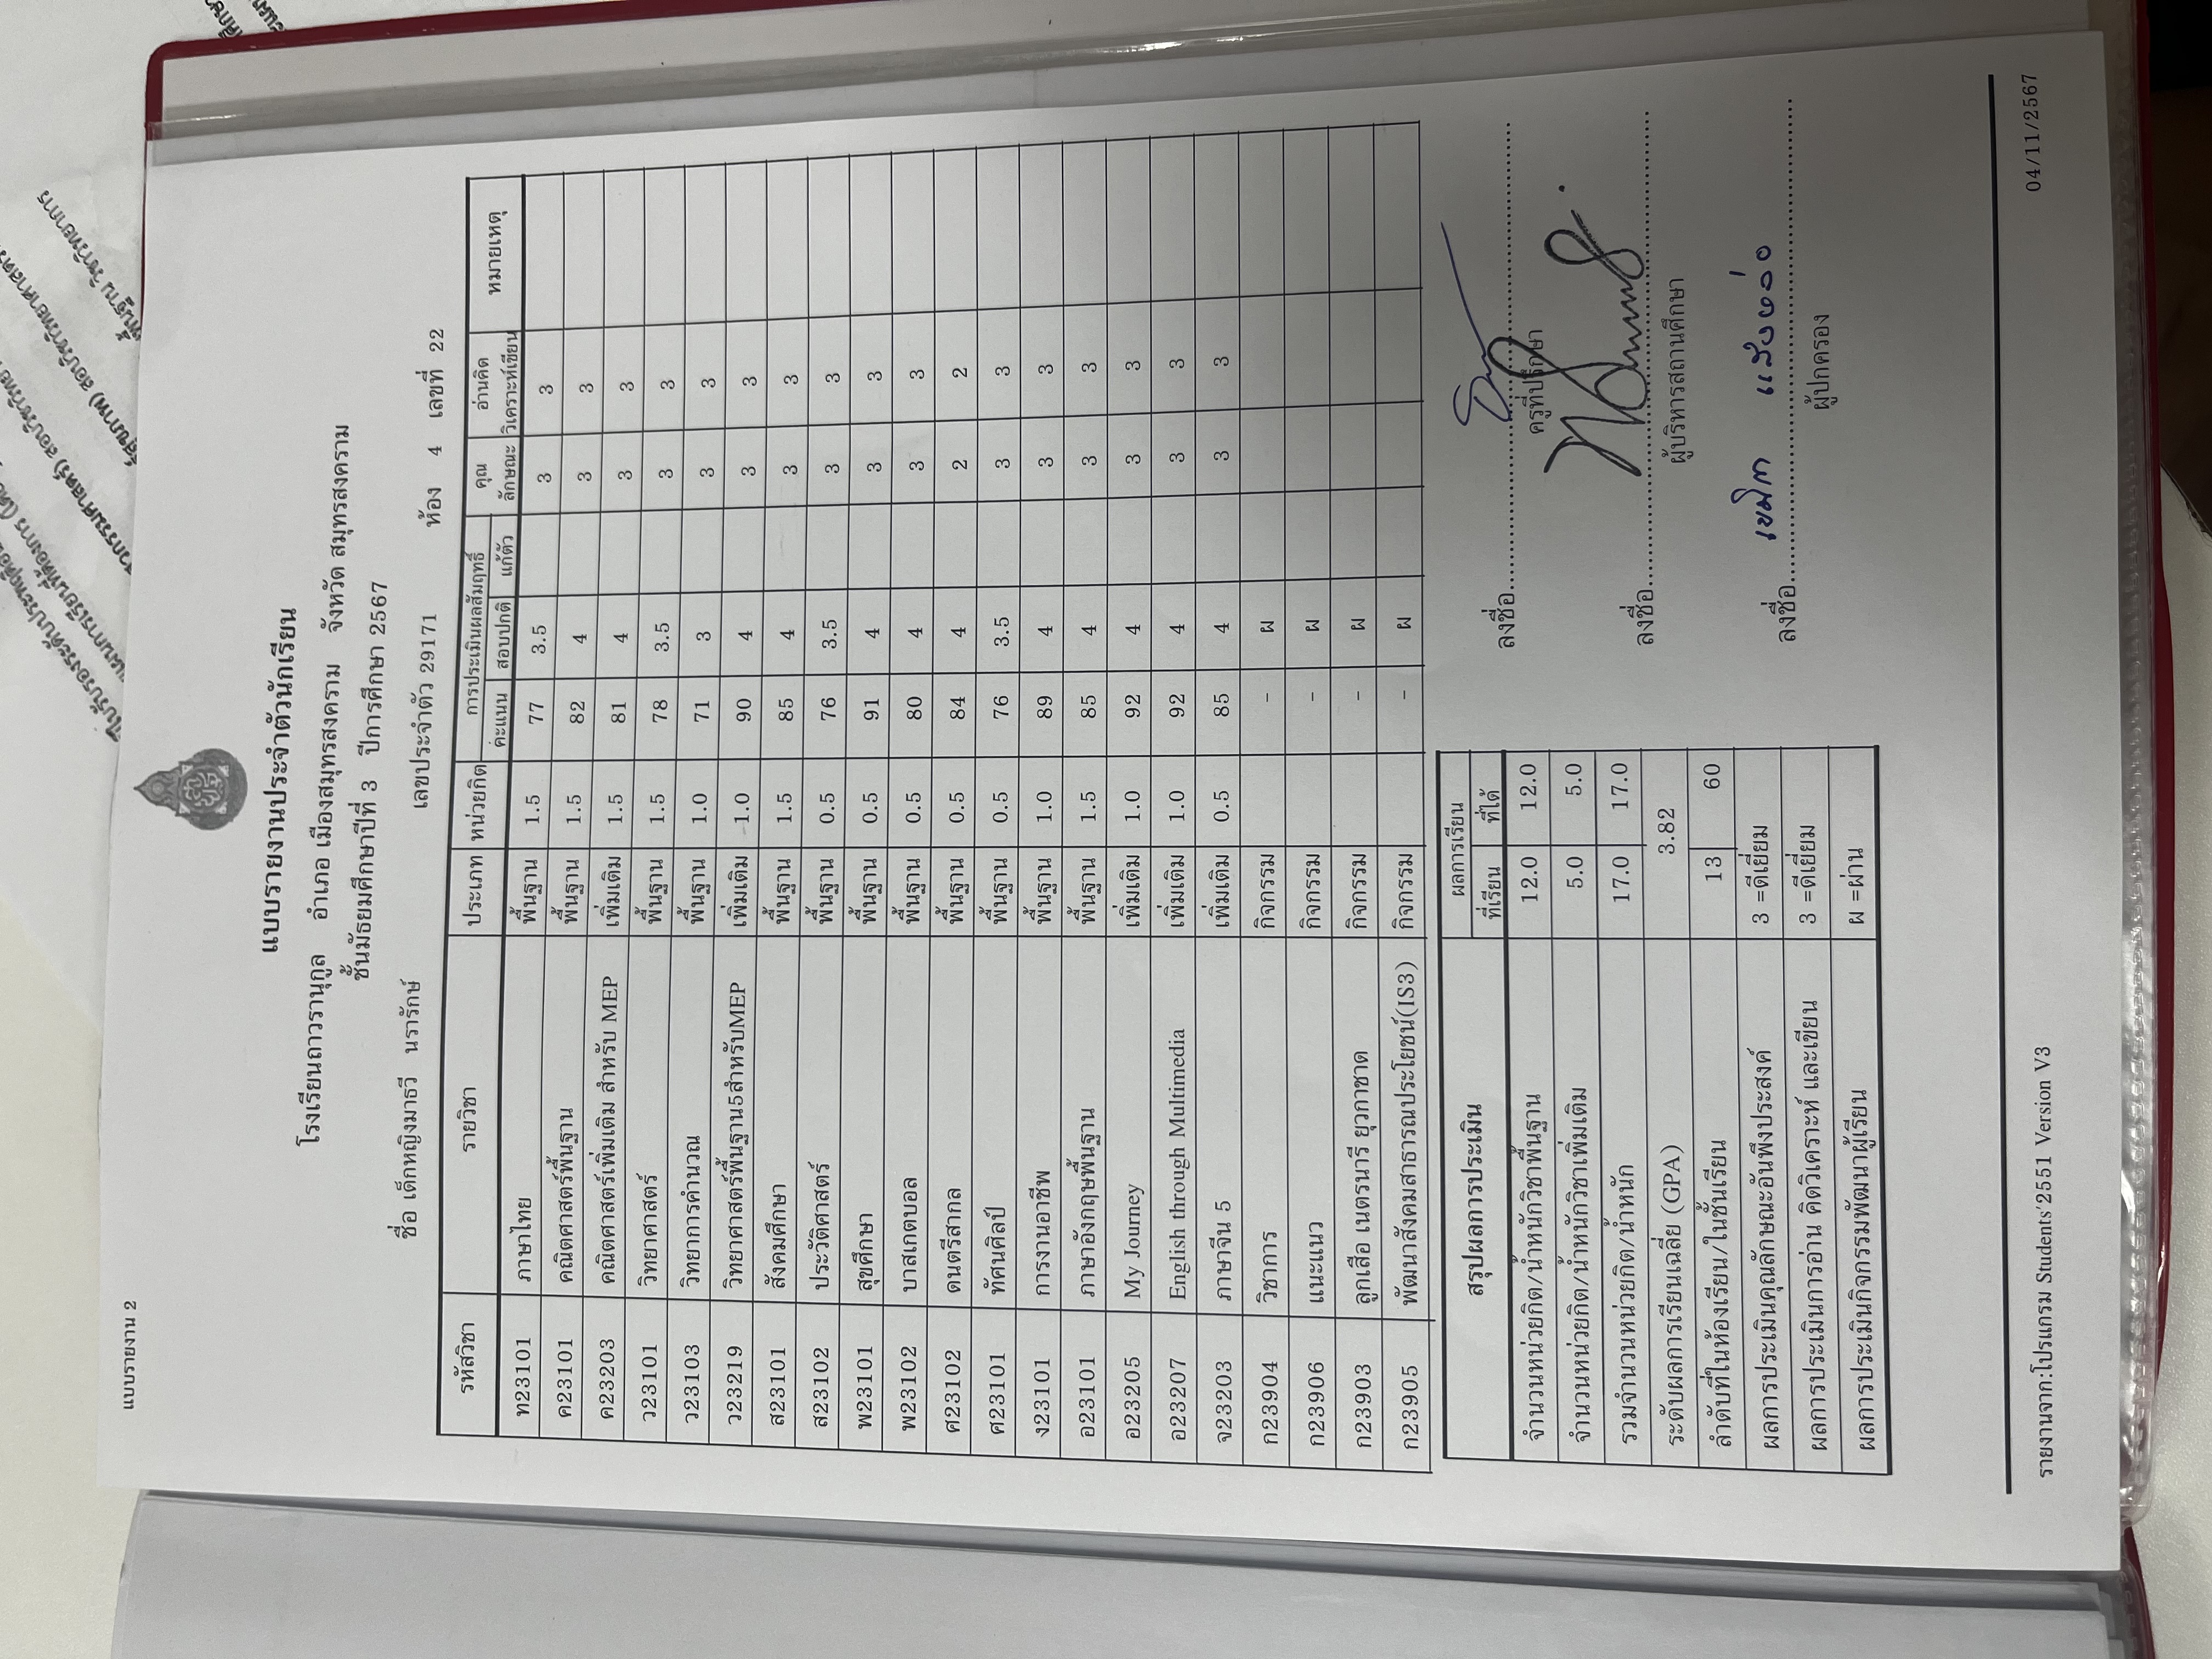 แบบรายงาน 2
แบบรายงานประจำตัวนักเรียน
โรงเรียนถาวรานุกูล อำเภอ เมืองสมุทรสงคราม จังหวัด สมุทรสงคราม
ชั้นมัธยมศึกษาปีที่ 3 ปีการศึกษา 2567
ชื่อ เด็กหญิงมาธวี นรารักษ์ เลขประจำตัว 29171 ห้อง 4 เลขที่ 22
รหัสวิชา รายวิชา ประเภท หน่วยกิต การประเมินผลสัมฤทธิ์ คุณลักษณะ อ่านคิดวิเคราะห์เขียน หมายเหตุ
คะแนน สอบปกติ แก้ตัว
ท23101 ภาษาไทย พื้นฐาน 1.5 77 3.5 3 3
ค23101 คณิตศาสตร์พื้นฐาน พื้นฐาน 1.5 82 4 3 3
ค23203 คณิตศาสตร์เพิ่มเติม สำหรับ MEP เพิ่มเติม 1.5 81 4 3 3
ว23101 วิทยาศาสตร์ พื้นฐาน 1.5 78 3.5 3 3
ว23103 วิทยาการคำนวณ พื้นฐาน 1.0 71 3 3 3
ว23219 วิทยาศาสตร์พื้นฐาน5สำหรับMEP เพิ่มเติม 1.0 90 4 3 3
ส23101 สังคมศึกษา พื้นฐาน 1.5 85 4 3 3
ส23102 ประวัติศาสตร์ พื้นฐาน 0.5 76 3.5 3 3
พ23101 สุขศึกษา พื้นฐาน 0.5 91 4 3 3
พ23102 บาสเกตบอล พื้นฐาน 0.5 80 4 3 3
ศ23102 ดนตรีสากล พื้นฐาน 0.5 84 4 2 2
ศ23101 ทัศนศิลป์ พื้นฐาน 0.5 76 3.5 3 3
ง23101 การงานอาชีพ พื้นฐาน 1.0 89 4 3 3
อ23101 ภาษาอังกฤษพื้นฐาน พื้นฐาน 1.5 85 4 3 3
อ23205 My Journey เพิ่มเติม 1.0 92 4 3 3
อ23207 English through Multimedia เพิ่มเติม 1.0 92 4 3 3
จ23203 ภาษาจีน 5 เพิ่มเติม 0.5 85 4 3 3
ก23904 วิชาการ กิจกรรม - ผ
ก23906 แนะแนว กิจกรรม - ผ
ก23903 ลูกเสือ เนตรนารี ยุวกาชาด กิจกรรม - ผ
ก23905 พัฒนาสังคมสาธารณประโยชน์(IS3) กิจกรรม - ผ
สรุปผลการประเมิน ผลการเรียน
ที่เรียน ที่ได้
จำนวนหน่วยกิต/น้ำหนักวิชาพื้นฐาน 12.0 12.0
จำนวนหน่วยกิต/น้ำหนักวิชาเพิ่มเติม 5.0 5.0
รวมจำนวนหน่วยกิต/น้ำหนัก 17.0 17.0
ระดับผลการเรียนเฉลี่ย (GPA) 3.82
ลำดับที่ในห้องเรียน/ในชั้นเรียน 13 60
ผลการประเมินคุณลักษณะอันพึงประสงค์ 3 =ดีเยี่ยม
ผลการประเมินการอ่าน คิดวิเคราะห์ และเขียน 3 =ดีเยี่ยม
ผลการประเมินกิจกรรมพัฒนาผู้เรียน ผ =ผ่าน
ลงชื่อ
ครูที่ปรึกษา
ลงชื่อ
ผู้บริหารสถานศึกษา
ลงชื่อ
ผู้ปกครอง
รายงานจาก:โปรแกรม Students'2551 Version V3 04/11/2567